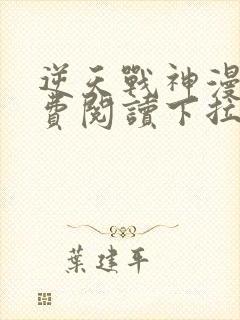 逆天戰神漫
費閱讀下拉
葉建平